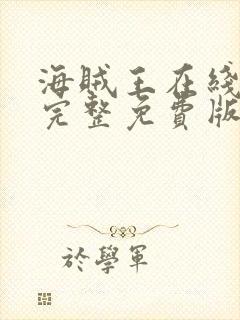 海賊王在綫
完整免費版
於學軍